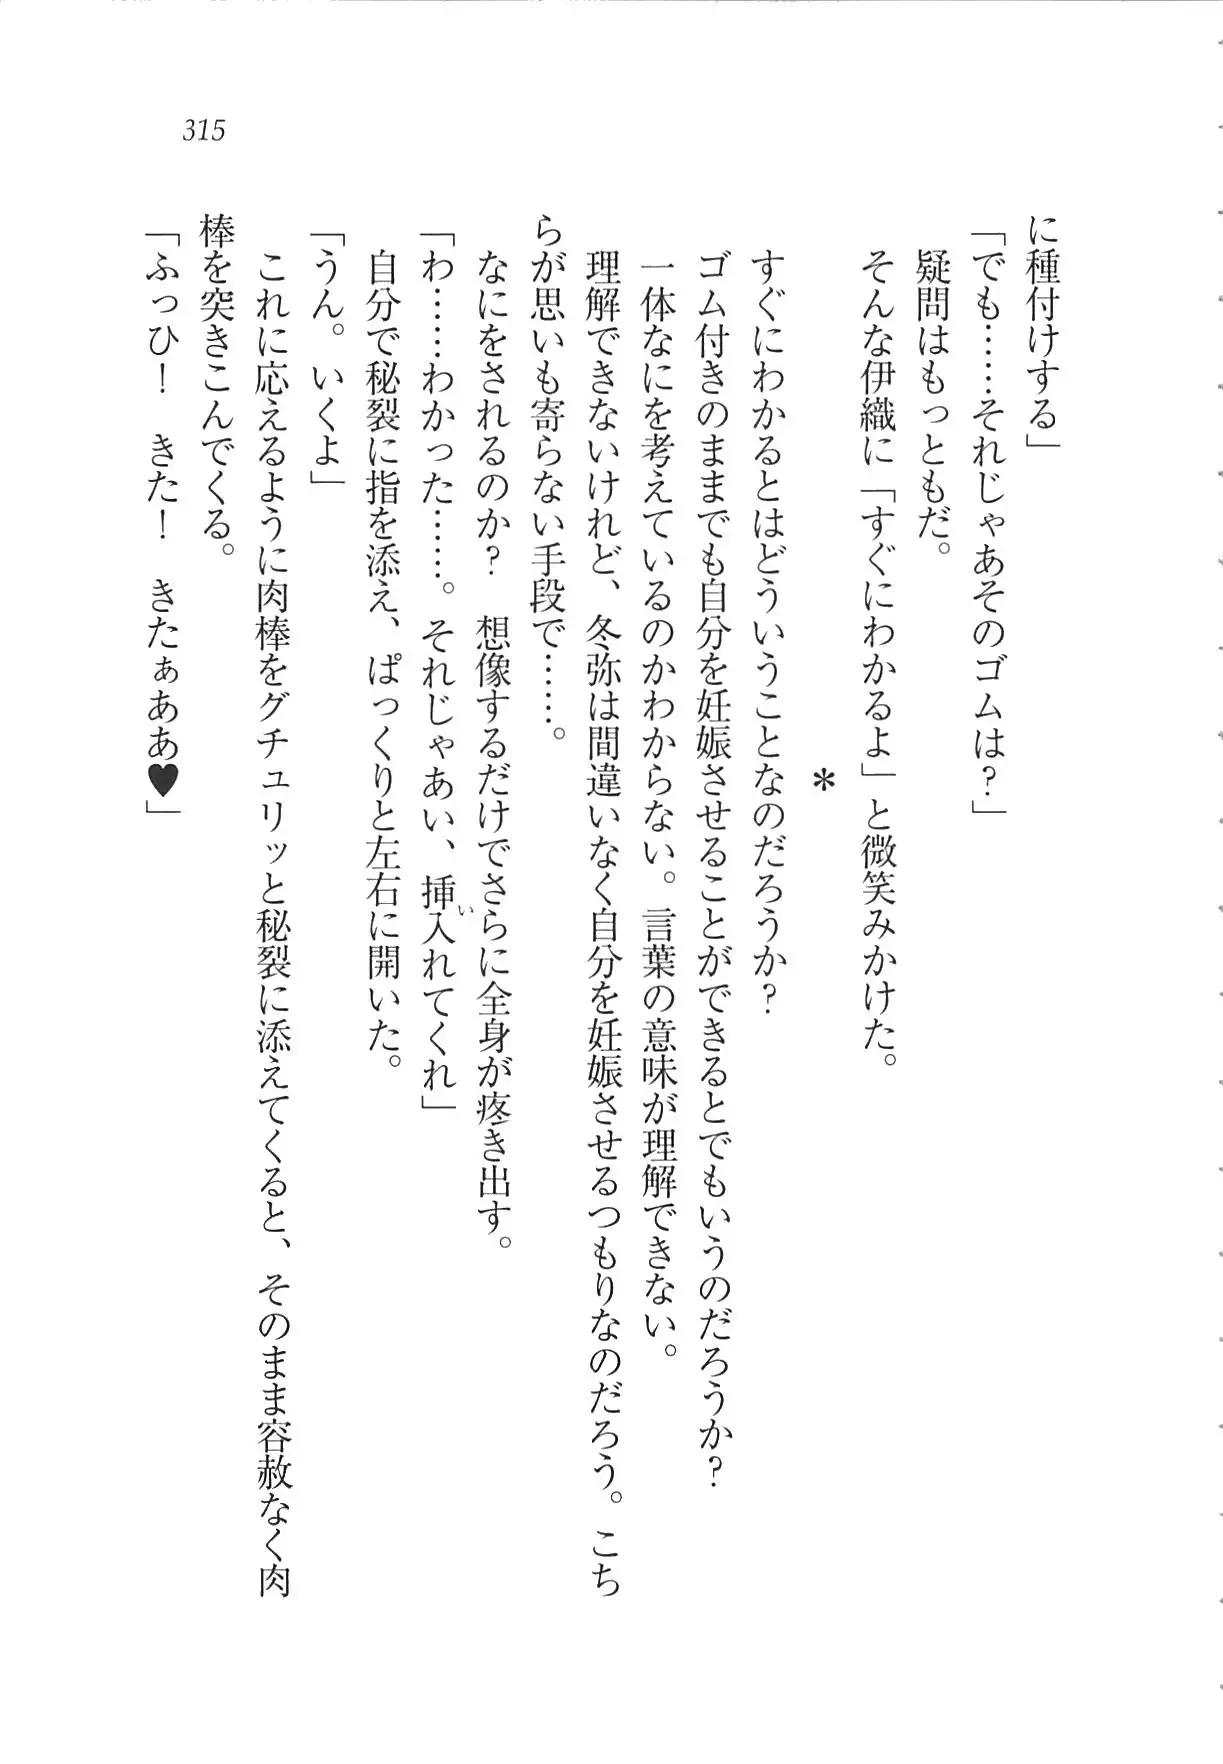 315
に種付けする」
「でも……それじゃあそのゴムは？」
疑問はもっともだ。
そんな伊織に「すぐにわかるよ」と微笑みかけた。
＊
すぐにわかるとはどういうことなのだろうか？
ゴム付きのままでも自分を妊娠させることができるとでもいうのだろうか？
一体なにを考えているのかわからない。言葉の意味が理解できない。
理解できないけれど、冬弥は間違いなく自分を妊娠させるつもりなのだろう。こち
らが思いも寄らない手段で……。
なにをされるのか？　想像するだけでさらに全身が疼き出す。
「わ……わかった……。それじゃあい、挿入れてくれ」
い
自分で秘裂に指を添え、ぱっくりと左右に開いた。
「うん。いくよ」
これに応えるように肉棒をグチュリッと秘裂に添えてくると、そのまま容赦なく肉
棒を突きこんでくる。
「ふっひ！　きた！　きたぁああ♥」